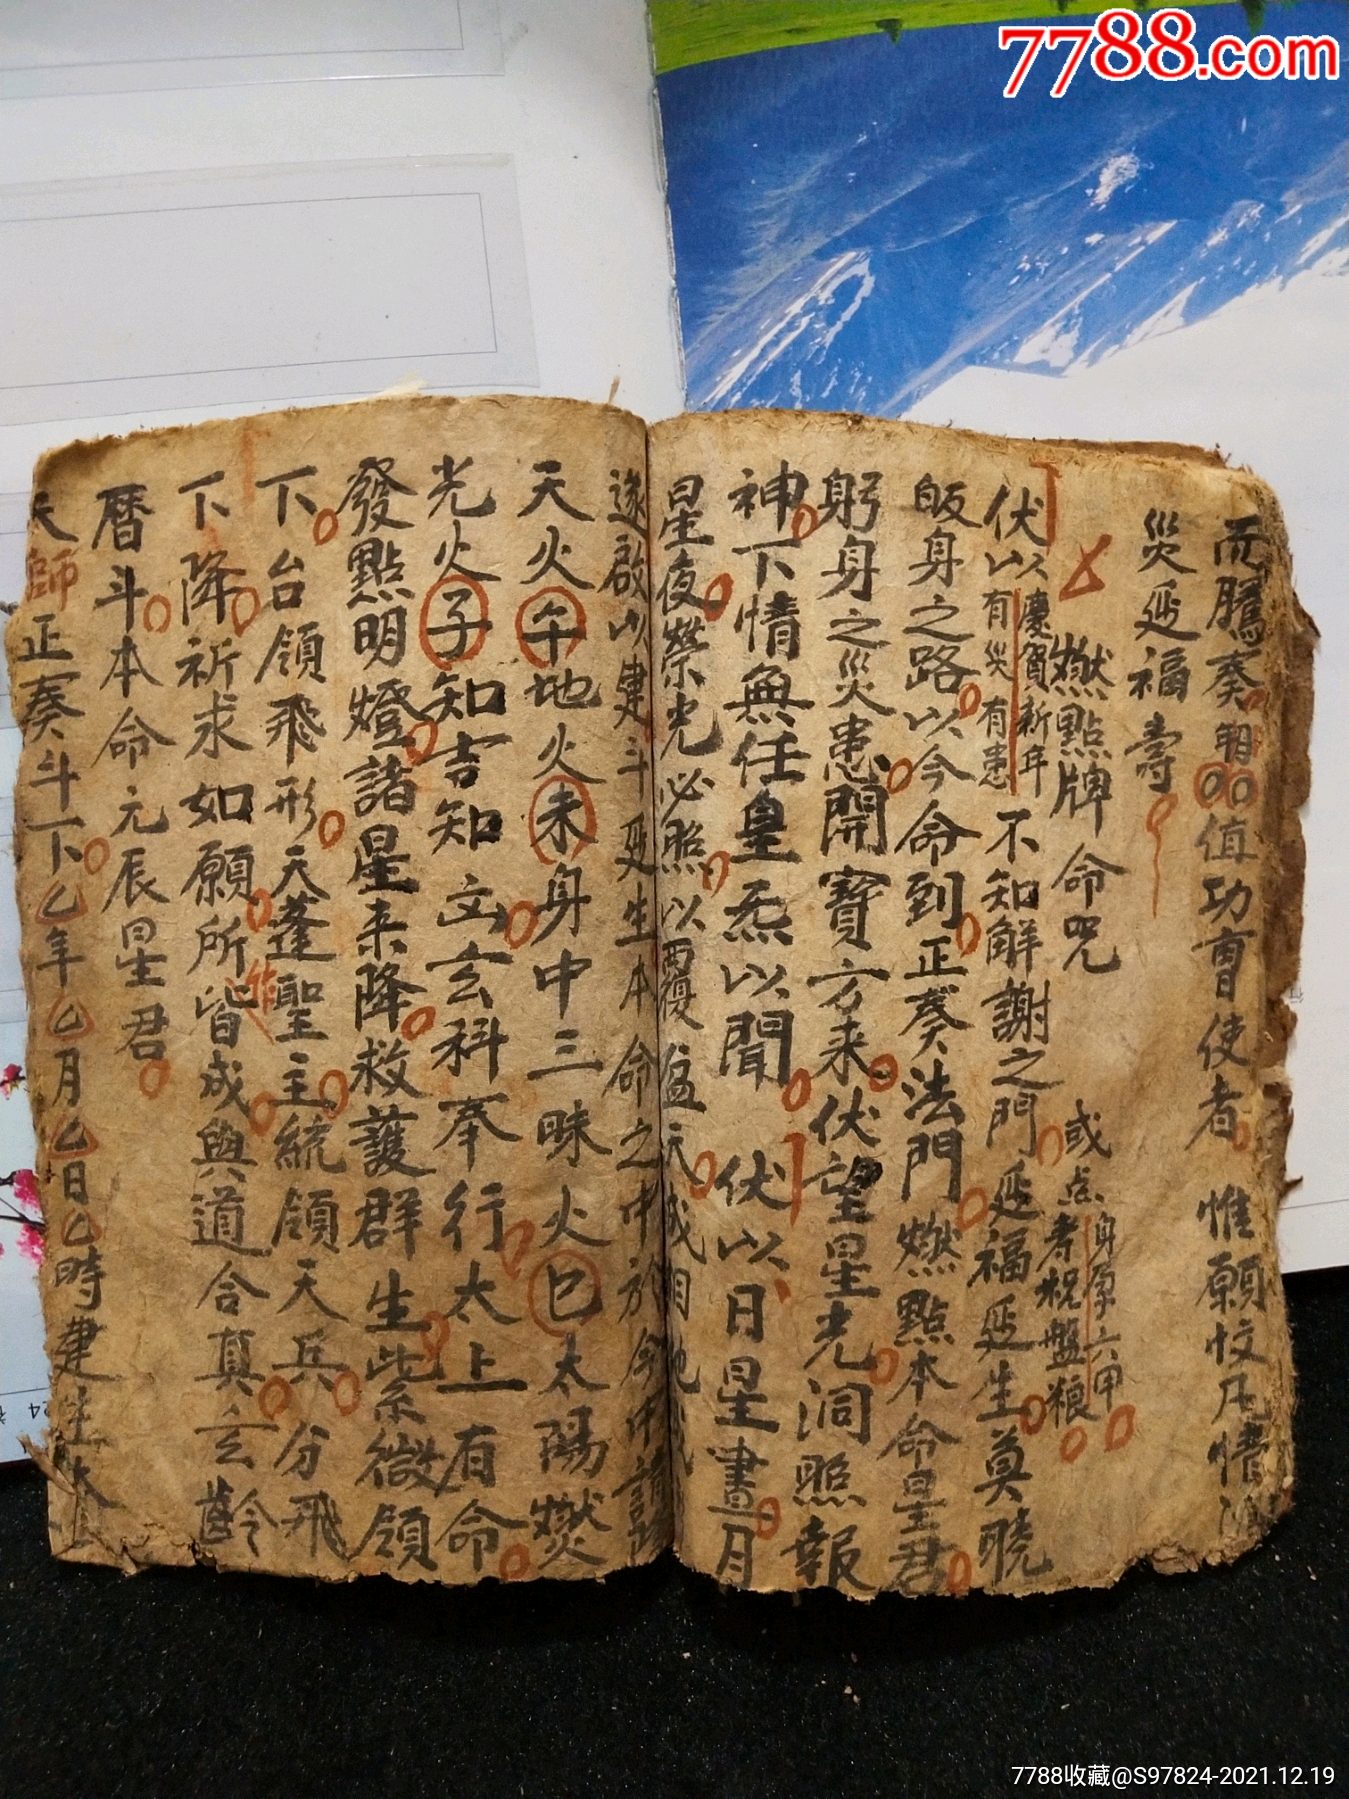 7788.com
而騰奏明值功曹使者惟願
災延福壽
燃點牌命咒 或点者祝盤粮 身原六甲
伏以慶賀新年有災有患不知解謝之門延福延生莫曉
皈身之路以今命到正奏法門燃點本命星君
躬身之災患開寶方来伏望星光洞照報
神下情無任皇炁以聞 伏以日星晝月
星夜榮光必照以覆
遂啟以建斗延生本命之中方今中
天火午地火未身中三昧火巳太陽燃
光火子知吉知玄科奉行太上有命
發點明燈諸星来降救護群生紫微領
下台領飛形天蓬聖主統領天兵分飛
下降祈求如願所皆成與道合真玄齡
曆斗本命元辰星君
天師正奏斗下乙年乙月乙日乙時建生
7788收藏@S97824-2021.12.19